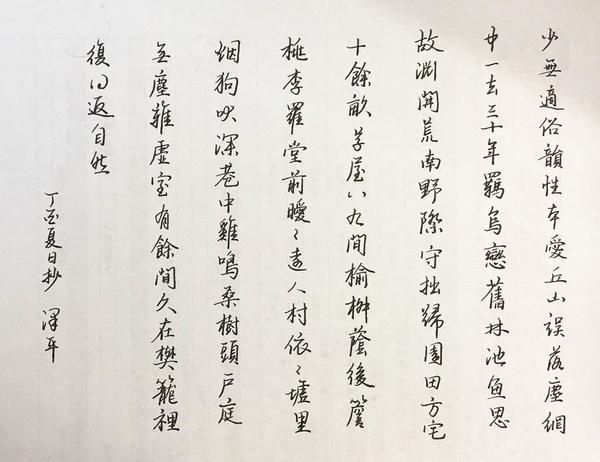 少無適俗韻性本愛丘山誤落塵網
中一去三十年羈鳥戀舊林池魚思
故淵開荒南野際守拙歸園田方宅
十餘畝草屋八九間榆柳蔭後簷
桃李羅堂前曖〻遠人村依〻墟里
烟狗吠深巷中雞鳴桑樹頭戶庭
無塵雜虛室有餘間久在樊籠裡
復得返自然
丁酉夏日抄